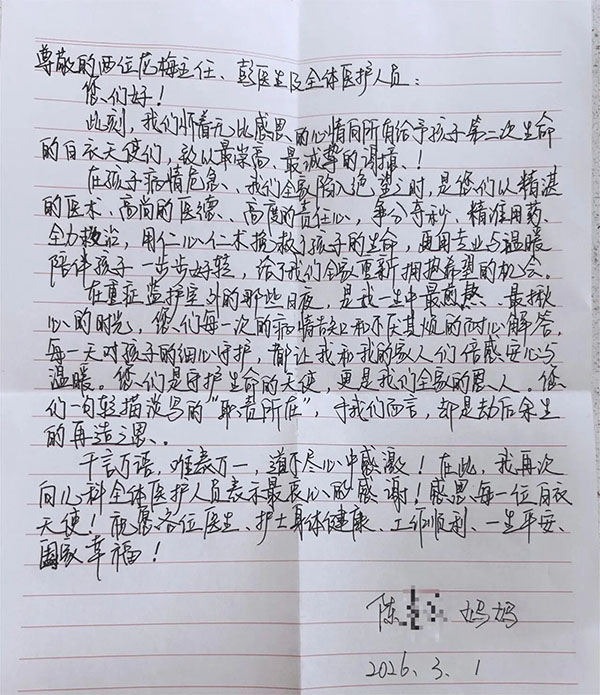 尊敬的两位范梅主任、彭医生及全体医护人员：
您们好！
此刻，我们怀着无比感恩的心情向所有给予孩子第二次生命
的白衣天使们，致以最崇高、最诚挚的谢意！
在孩子病情危急、我们全家陷入绝望之时，是您们以精湛
的医术、高尚的医德、高度的责任心，争分夺秒、精准用药、
全力救治，用仁心仁术挽救了孩子的生命，更用专业与温暖
陪伴孩子一步步好转，给了我们全家重新拥抱希望的机会。
在重症监护室外的那些日夜，是我一生中最煎熬、最揪
心的时光，您们每一次的病情告知和不厌其烦的耐心解答，
每一天对孩子的细心守护，都让我和我的家人们倍感安心与
温暖。您们是守护生命的天使，更是我们全家的恩人。您
们一句轻描淡写的“职责所在”，于我们而言，却是劫后余生
的再造之恩。
千言万语，难表万一，道不尽心中感激！在此，我再次
向儿科全体医护人员表示最衷心的感谢！感恩每一位白衣
天使！祝愿各位医生、护士身体健康、工作顺利、一生平安、
阖家幸福！
陈 妈妈
2026.3.1